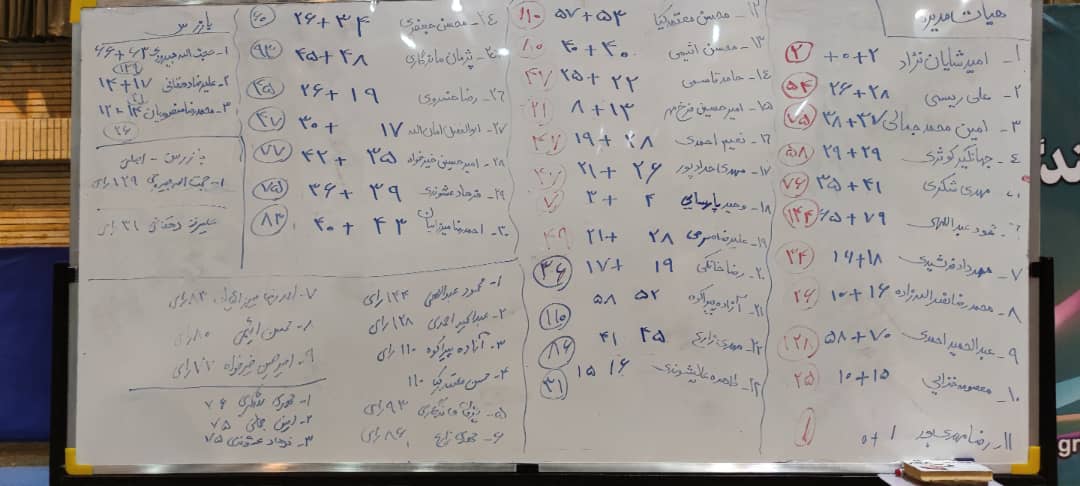 هیات مدیره
۱_ امیر شایان نژاد ۰+۲ ۲
۲_ علی رییسی ۲۶+۲۸ ۵۴
۳_ امین محمد جمالی ۳۸+۳۷ ۷۵
۴_ جهانگیر کوثری ۲۹+۲۹ ۵۸
مهدی شکری ۳۵+۴۱ ۷۶
۶۵+۷۹ ۱۴۴
۷_ مهرداد فرشیدی ۱۶+۱۸ ۳۴
۸_ محمدرضا ۱۰+۱۶ ۲۶
۹_ عبدالحمید احمدی ۵۸+۷۰ ۱۲۸
۱۰_ معصومه خزائی ۱۰+۱۵ ۲۵
۱۱_ رضا مهدی پور ۰+۱ ۱
۱۲_ محسن معتمدکیا ۵۷+۵۳ ۱۱۰
۱۳_ محسن ۴۰+۴۰ ۸۰
۱۴_ حامد قاسمی ۲۵+۲۲ ۴۷
۱۵_ امیرحسین فرخ مهر ۸+۱۳ ۲۱
۱۶_ نعیم احمدی ۱۹+۲۸ ۴۷
۱۷_ مهدی حدادپور ۲۱+۲۶
۱۸_ وحید پارسایی ۳+۴ ۷
۱۹_ علیرضا ۲۱+۲۸ ۴۹
۲۰_ رضا خانکی ۱۷+۱۹ ۳۶
۲۱_ آزاده پیراکوه ۵۸ ۵۲ ۱۱۰
۲۲_ مهدی زارع ۴۱ ۴۵ ۸۶
طاهره ۱۵ ۱۶ ۳۱
۲۴_ محسن جعفری ۲۶+۳۴ ۶۰
۲۵_ پژمان ماندگاری ۴۵+۴۸ ۹۳
۲۶_ رضا خسروی ۲۶+۱۹ ۴۵
۲۷_ ابوالفضل امان الله ۳۰+۱۷ ۴۷
۲۸_ امیرحسین خیرخواه ۴۲+۳۵ ۷۷
۲۹_ فرهاد عشوندی ۳۶+۳۹ ۷۵
۳۰_ احمدرضا ۴۰+۴۳ ۸۳
بازرس
۱_ حجت اله ۶۶+۶۳
۱۲۹
۲_ علیرضا دهقانی ۱۴+۱۷
۳_ محمدرضا منصوریان ۱۲+۱۴
۲۶
بازرس _ اصلی
۱_ حجت اله ۱۲۹ رای
علیرضا دهقانی ۳۱ رای
۱_ محمود عبدالهی ۱۴۴ رای
۲_ عبدالحمید احمدی ۱۲۸ رای
۳_ آزاده پیراکوه ۱۱۰ رای
۴_ محسن معتمدکیا ۱۱۰
۵_ پژمان ماندگاری ۹۳ رای
۶_ مهدی زارع ۸۶ رای
۷_ احمدرضا ۸۳ رای
۸_ محسن ۸۰ رای
۹_ امیرحسین خیرخواه ۷۷ رای
۱_ مهدی شکری ۷۶
۲_ امین جمالی ۷۵
۳_ فرهاد عشوندی ۷۵